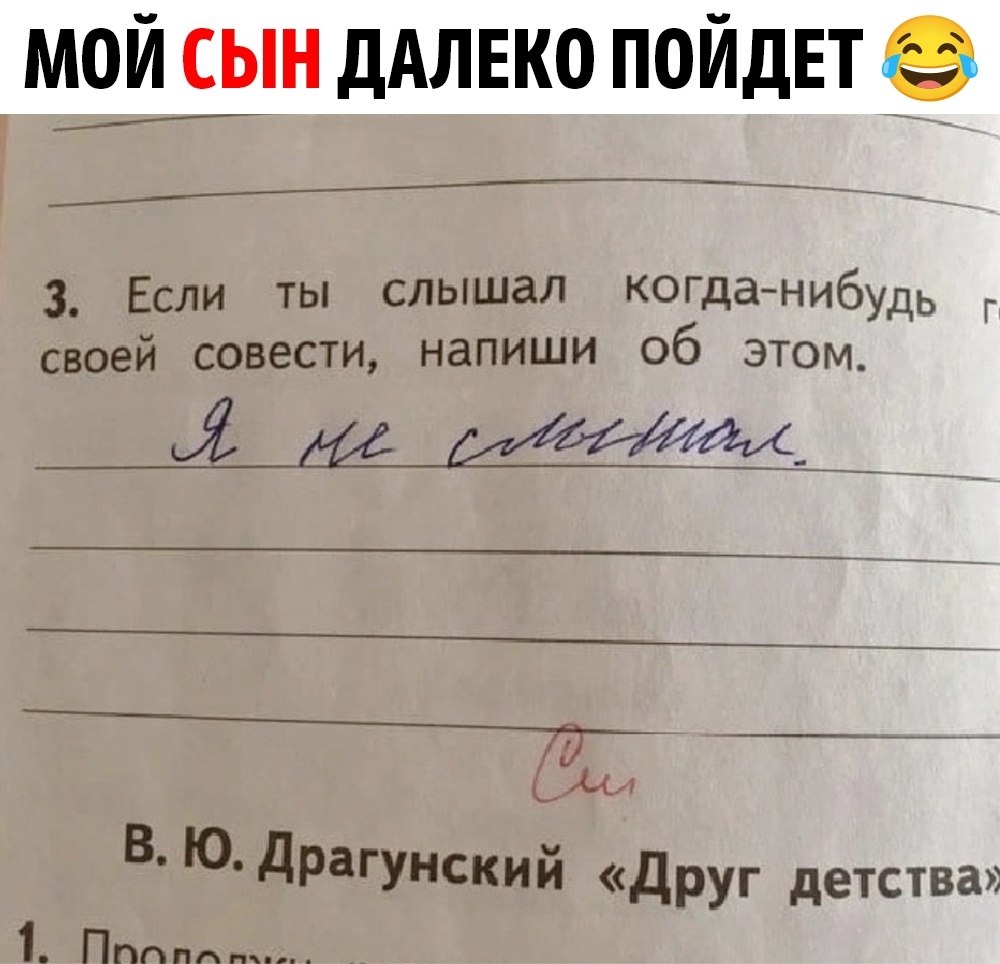 МОЙ СЫН ДАЛЕКО ПОЙДЕТ 😂
3. Если ты слышал когда-нибудь
своей совести, напиши об этом.
Я не слышал.
См
В. Ю. Драгунский «Друг детства»
1.